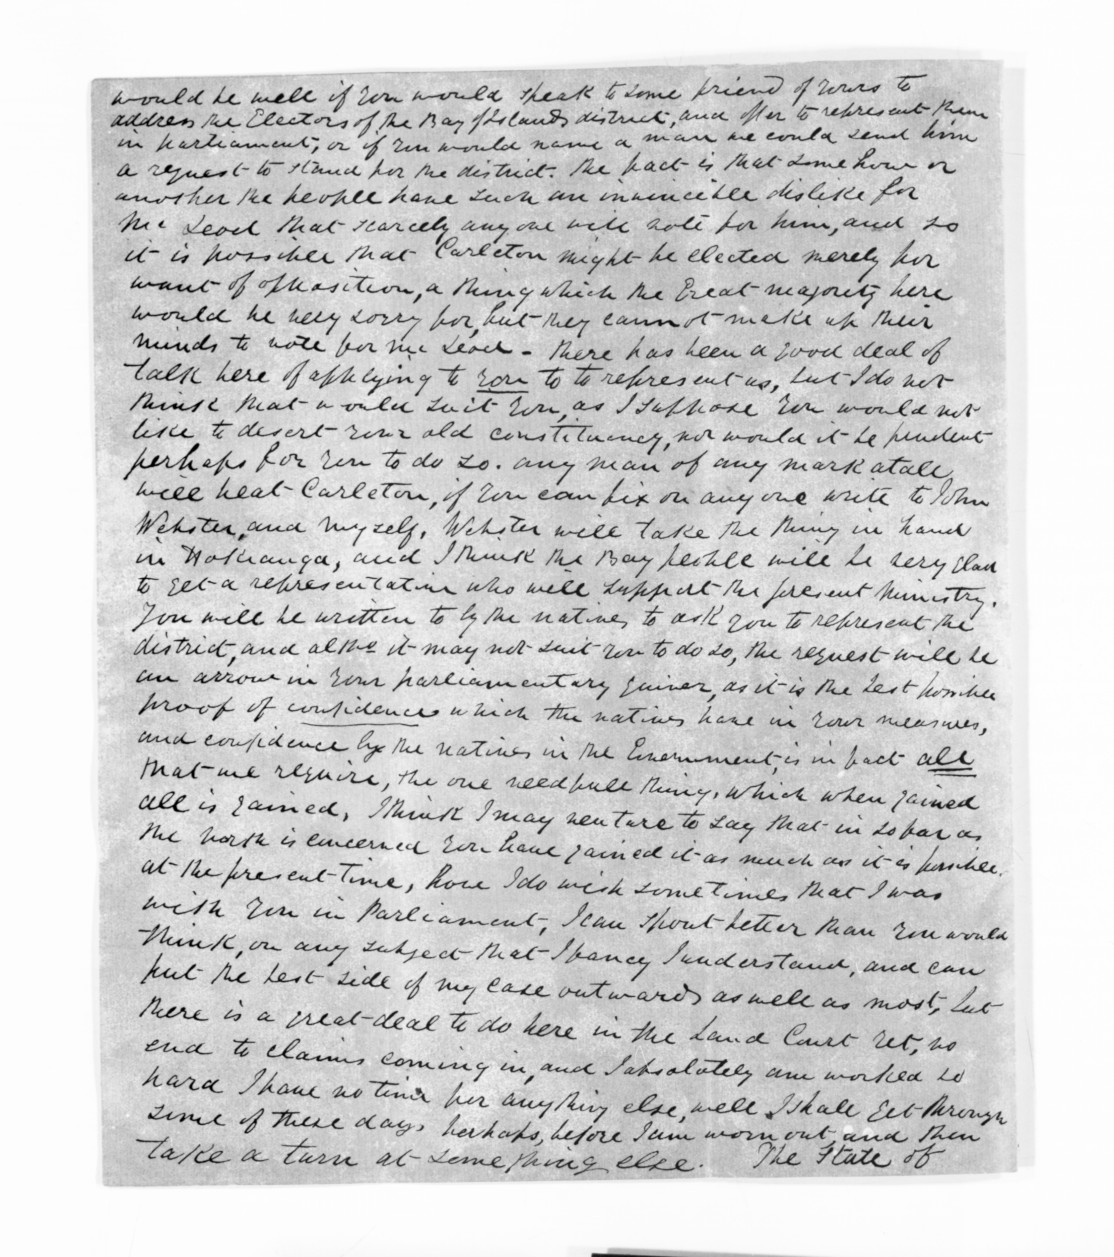 would be well if you would speak to some friend of yours to
address the Electors of the Bay of Islands district, and offer to represent them
in parliament, or if you would name a man we could send him
a request to stand for the district. the fact is that some how or
another the people have such an invincible dislike for
Mc Leod that scarcely any one will vote for him, and so
it is possible that Carleton might be elected merely for
want of opposition, a thing which the Great majority here
would be very sorry for, but they cannot make up their
minds to vote for Mc Leod - there has been a good deal of
talk here of applying to you to to represent us, but I do not
think that would suit you, as I suppose you would not
like to desert your old constituency, nor would it be prudent
perhaps for you to do so. any man of any mark atall
will beat Carleton, if you can fix on any one write to John
Webster, and myself, Webster will take the thing in hand
in Hokianga, and I think the Bay people will be very glad
to get a representative who will support the present Ministry.
You will be written to by the natives to ask you to represent the
district, and altho it may not suit you to do so, the request will be
an arrow in your parliamentary quiver, as it is the best possible
proof of confidence which the natives have in your measures,
and confidence by the natives in the Government, is in fact all
that we require, the one needfull thing, which when gained
all is gained, I think I may venture to say that in so far as
the north is concerned you have gained it as much as it is possible
at the present time, how I do wish sometimes that I was
with you in Parliament, I can spout better than you would
think, on any subject that I fancy I understand, and can
put the best side of my case outwards as well as most, but
there is a great deal to do here in the Land Court yet, no
end to claims coming in, and I absolutely am worked so
hard I have no time for any thing else, well I shall get through
some of these days perhaps, before I am worn out, and then
take a turn at something else. The State of